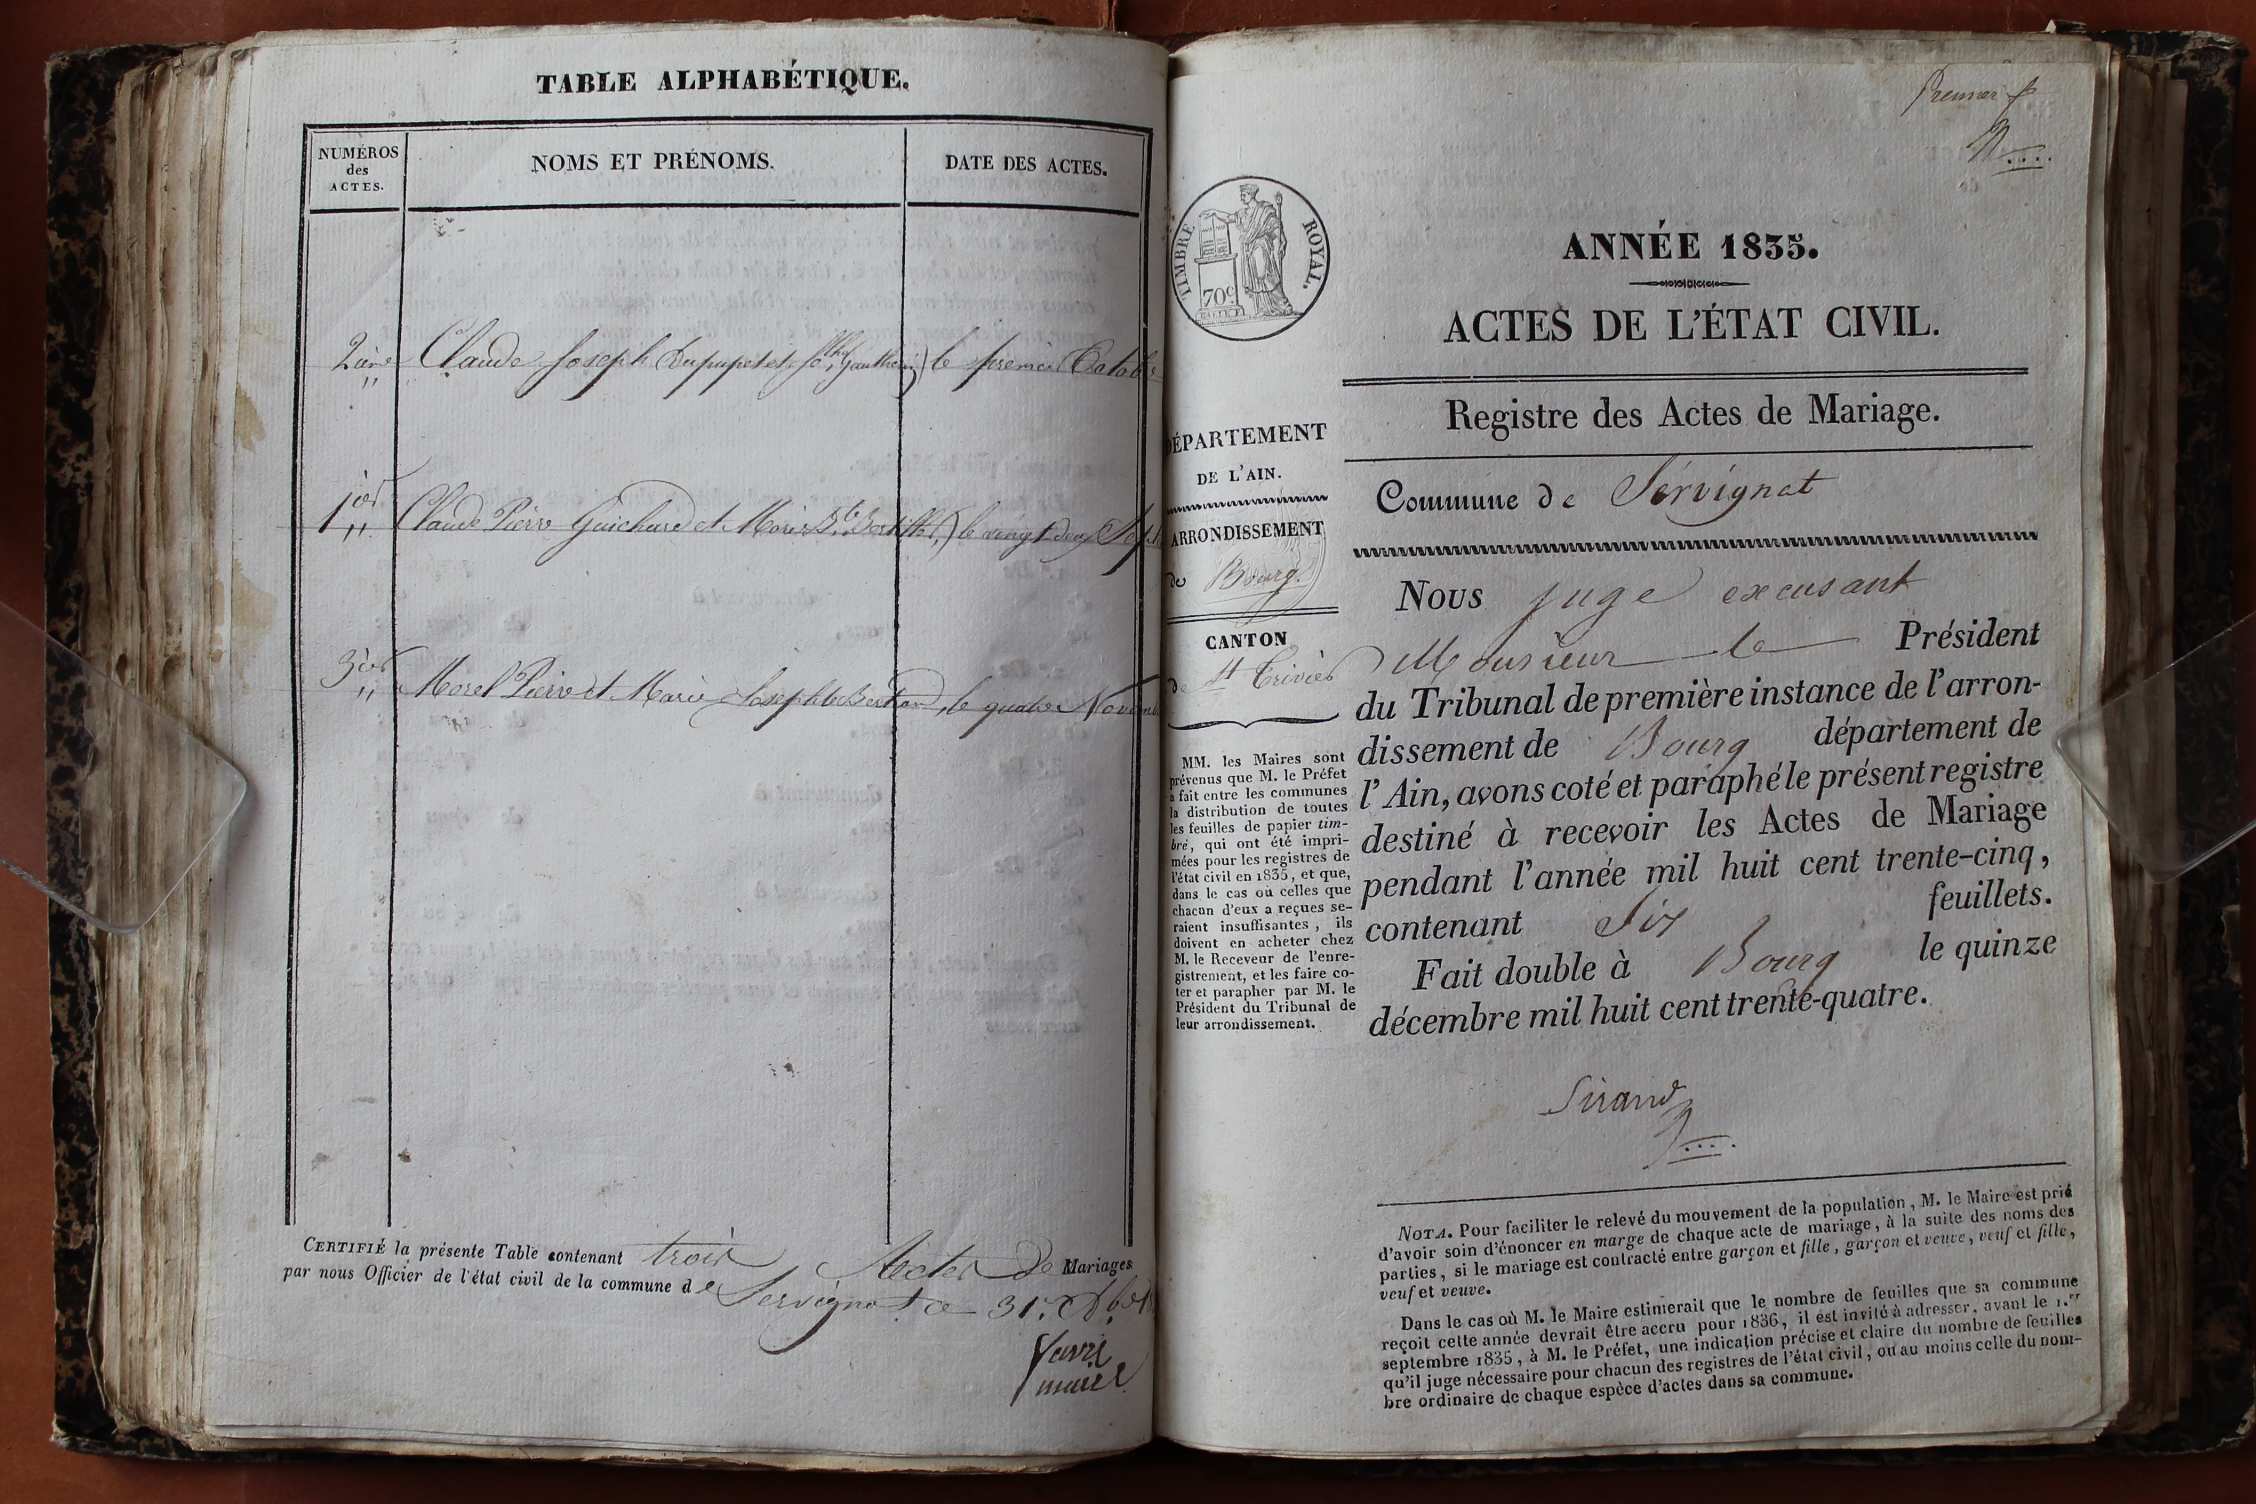 TABLE ALPHABÉTIQUE.
NUMÉROS
des
ACTES.
NOMS ET PRÉNOMS.
DATE DES ACTES.
Claude Joseph Dupupet et Gauthier le premier Octobre
Claude Pierre Guichard et Marie le vingt deux Sept
Morel Pierre et Marie Josephte Bertrand, le quatre Novemb
CERTIFIÉ la présente Table contenant trois Actes de Mariages
par nous Officier de l'état civil de la commune de Servignat ce 31
maire
Premier f
TIMBRE ROYAL.
70c
ANNÉE 1835.
ACTES DE L'ÉTAT CIVIL.
Registre des Actes de Mariage.
Commune de Servignat
DÉPARTEMENT
DE L'AIN.
ARRONDISSEMENT
de Bourg.
CANTON
de St Trivier
MM. les Maires sont
prévenus que M. le Préfet
a fait entre les communes
la distribution de toutes
les feuilles de papier tim-
bré, qui ont été impri-
mées pour les registres de
l'état civil en 1835, et que,
dans le cas où celles que
chacun d'eux a reçues se-
raient insuffisantes, ils
doivent en acheter chez
M. le Receveur de l'enre-
gistrement, et les faire co-
ter et parapher par M. le
Président du Tribunal de
leur arrondissement.
Nous juge excusant
Monsieur le Président
du Tribunal de première instance de l'arron-
dissement de Bourg département de
l'Ain, avons coté et paraphé le présent registre
destiné à recevoir les Actes de Mariage
pendant l'année mil huit cent trente-cinq,
contenant Six feuillets.
Fait double à Bourg le quinze
décembre mil huit cent trente-quatre.
Sirand
NOTA. Pour faciliter le relevé du mouvement de la population, M. le Maire est prié
d'avoir soin d'énoncer en marge de chaque acte de mariage, à la suite des noms des
parties, si le mariage est contracté entre garçon et fille, garçon et veuve, veuf et fille,
veuf et veuve.
Dans le cas où M. le Maire estimerait que le nombre de feuilles que sa commune
reçoit cette année devrait être accru pour 1836, il est invité à adresser, avant le 1.er
septembre 1835, à M. le Préfet, une indication précise et claire du nombre de feuilles
qu'il juge nécessaire pour chacun des registres de l'état civil, ou au moins celle du nom-
bre ordinaire de chaque espèce d'actes dans sa commune.